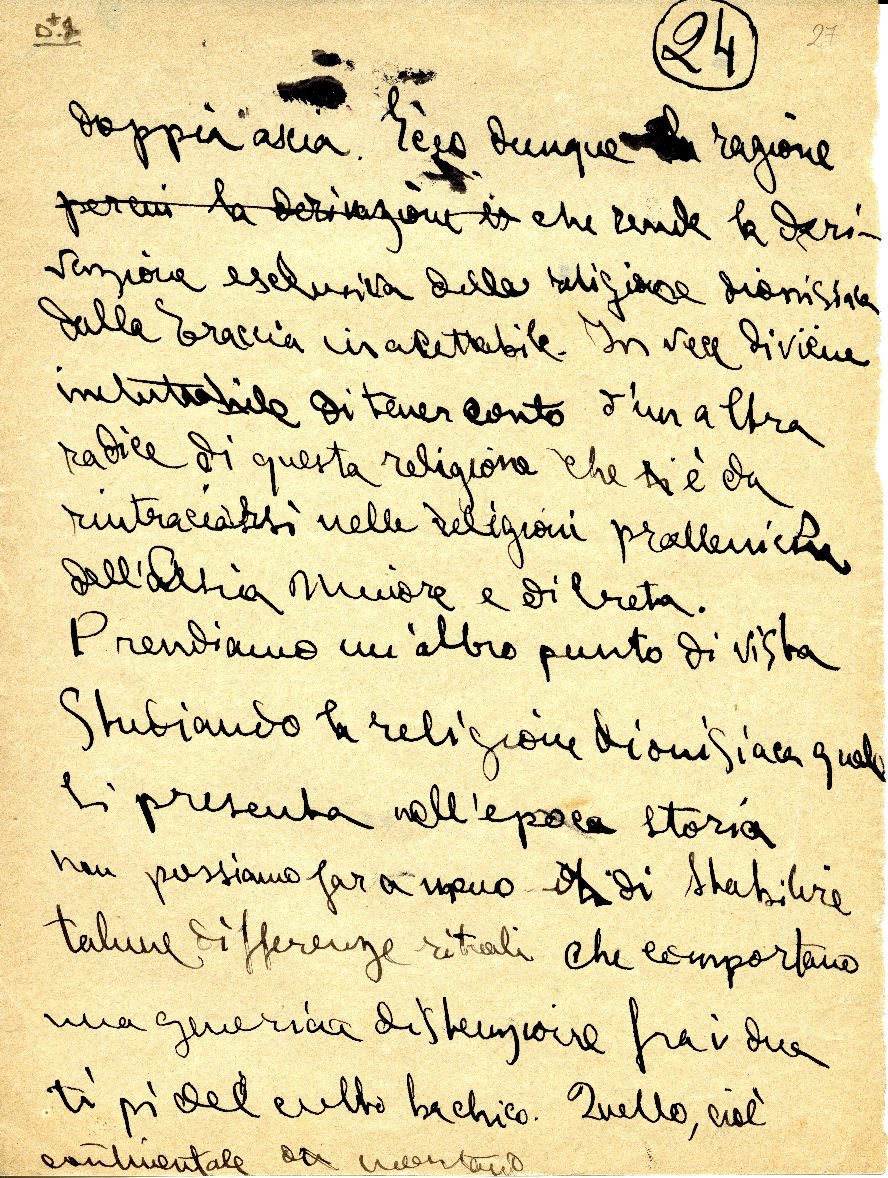 24
27
doppia ascia. Ecco dunque la ragione
che rende la deri-
vazione esclusiva della religione dionisiaca
dalla Traccia inacettabile. In vece diviene
di tener conto d'un altra
radice di questa religione che è da
rintraciarsi nelle religioni prelleniche
dell'Assia Minore e di Creta.
Prendiamo un'altro punto di vista
Studiando la religione dionisiaca quale
si presenta nell'epoca storica
non possiamo far a meno di stabilire
talune differenze rituali che comportano
una generica distenzione fra i due
tipi del culto bachico. Quello, cioè
continentale montano